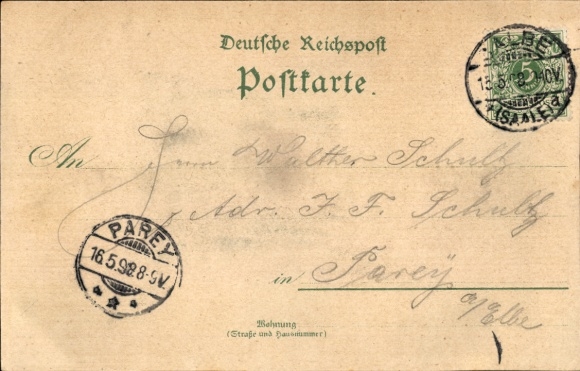 Deutsche Reichspost
Postkarte.
CALBE
5
15.5.98. 9-10V.
*(SAALE)a
An Herrn Walther Schultz
Adr. F. F. Schultz
PAREY
16.5.98.8-9V.
in Parey
a/Elbe
Wohnung
(Straße und Hausnummer)